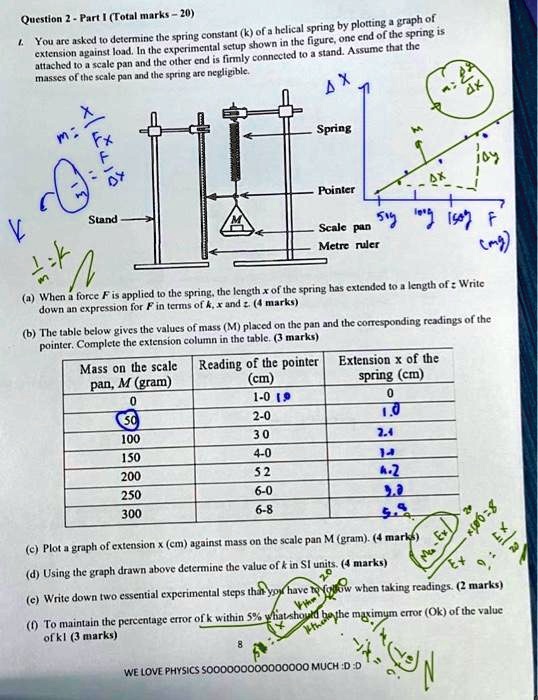 Question 2 - Part I (Total marks – 20)
1. You are asked to determine the spring constant (k) of a helical spring by plotting a graph of
extension against load. In the experimental setup shown in the figure, one end of the spring is
attached to a scale pan and the other end is firmly connected to a stand. Assume that the
masses of the scale pan and the spring are negligible.
Δ X
Spring
Pointer
Stand
M
Scale pan
Metre ruler
M
Δy
ΔX
50g 100g 150g F
(mg)
m = X
F x
F
ΔX
1/m = k
K
(a) When a force F is applied to the spring, the length x of the spring has extended to a length of : Write
down an expression for F in terms of k, x and z. (4 marks)
(b) The table below gives the values of mass (M) placed on the pan and the corresponding readings of the
pointer. Complete the extension column in the table. (3 marks)
Mass on the scale pan, M (gram) Reading of the pointer (cm) Extension x of the spring (cm)
0 1-0 1.0 0
50 2-0 1.0
100 3 0
150 4-0
200 5 2 4.2
250 6-0
300 6-8
(c) Plot a graph of extension x (cm) against mass on the scale pan M (gram). (4 marks)
(d) Using the graph drawn above determine the value of k in SI units. (4 marks)
(e) Write down two essential experimental steps that you have to follow when taking readings. (2 marks)
(f) To maintain the percentage error of k within 5% what should be the maximum error (Ok) of the value
of k1 (3 marks)
8
WE LOVE PHYSICS SOOOOOOOOOOOOOOO MUCH :D :D